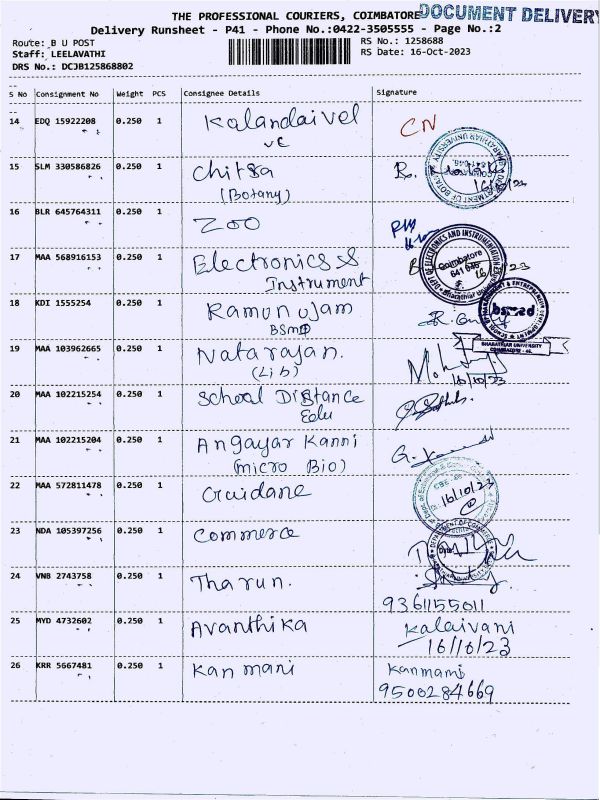 THE PROFESSIONAL COURIERS, COIMBATORE
DOCUMENT DELIVERY
Delivery Runsheet - P41 - Phone No.:0422-3505555 - Page No.:2
Route: B U POST
RS No.: 1258688
Staff: LEELAVATHI
RS Date: 16-Oct-2023
DRS No.: DCJB125868802
S No Consignment No Weight PCS Consignee Details Signature
14 EDQ 15922208 0.250 1 Kalandaivel CN
VC
15 SLM 330586826 0.250 1 Chitra R.
(Botany) 16/10/23
16 BLR 645764311 0.250 1 Zoo
17 MAA 568916153 0.250 1 Electronics &
Instrument
DEPT OF ELECTRONICS AND INSTRUMENTATION
Coimbatore
641 046
16/10/23
18 KDI 1555254 0.250 1 Ramanujam
BSMD
bsmed
BHARATHIAR UNIVERSITY
COIMBATORE - 46.
19 MAA 103962665 0.250 1 Natarajan.
(Lib) 16/10/23
20 MAA 102215254 0.250 1 School Distance
Edu
21 MAA 102215204 0.250 1 Angayar Kanni G.
(micro Bio)
22 MAA 572811478 0.250 1 Guidane 16/10/23
23 NDA 105397256 0.250 1 Commerce
DEPARTMENT OF COMMERCE
24 VNB 2743758 0.250 1 Tharun.
9361155011
25 MYD 4732602 0.250 1 Avanthika Kalaivani
16/10/23
26 KRR 5667481 0.250 1 Kanmani Kanmami
9500284669